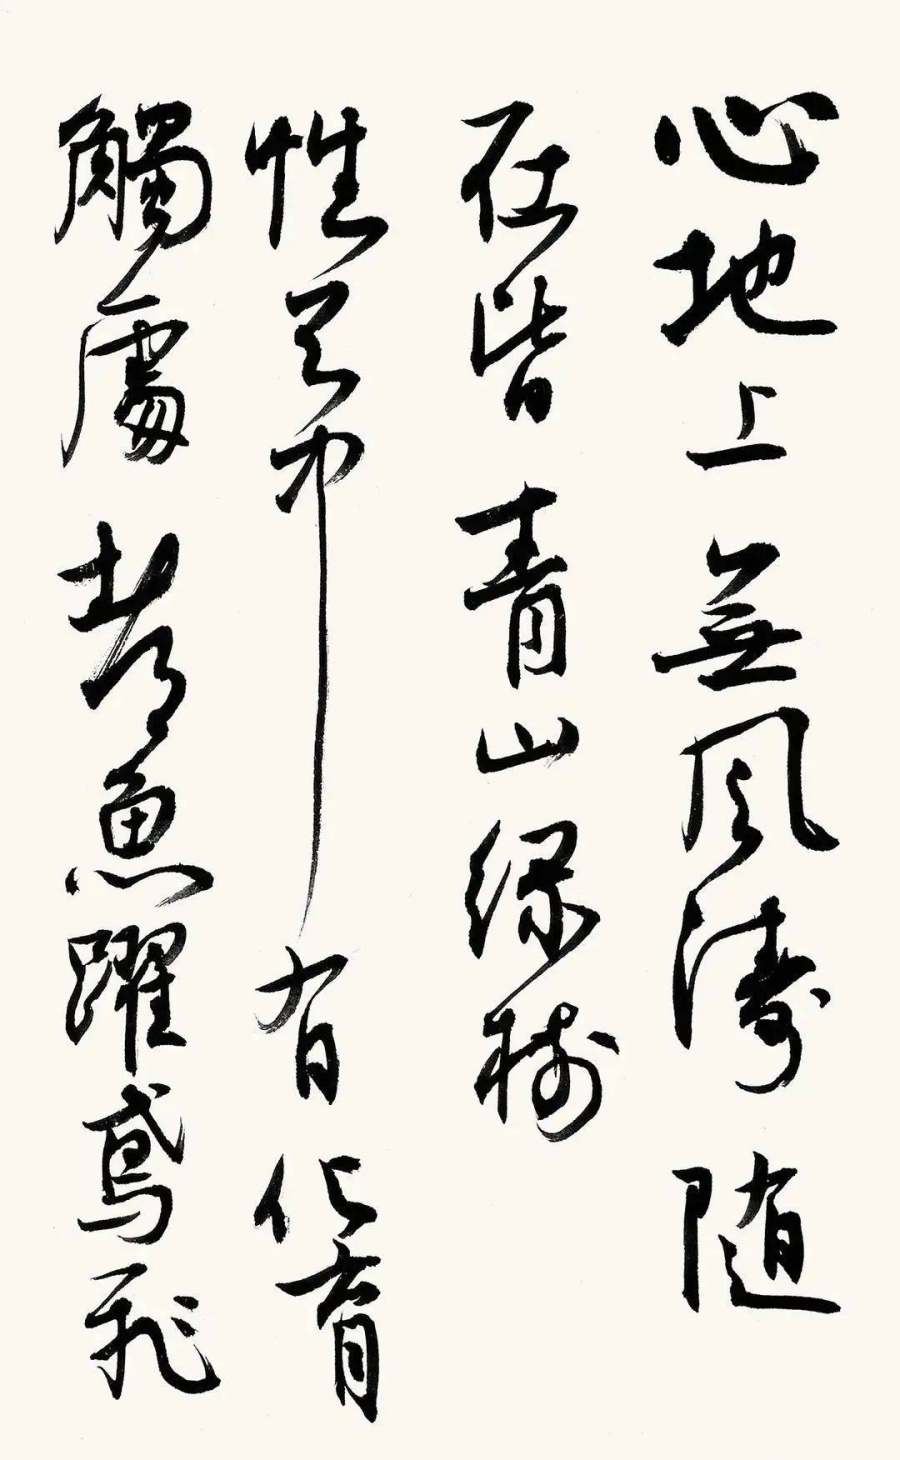 心地上無風濤随
在皆青山綠樹
性天中有化育
觸處都魚躍鳶飛